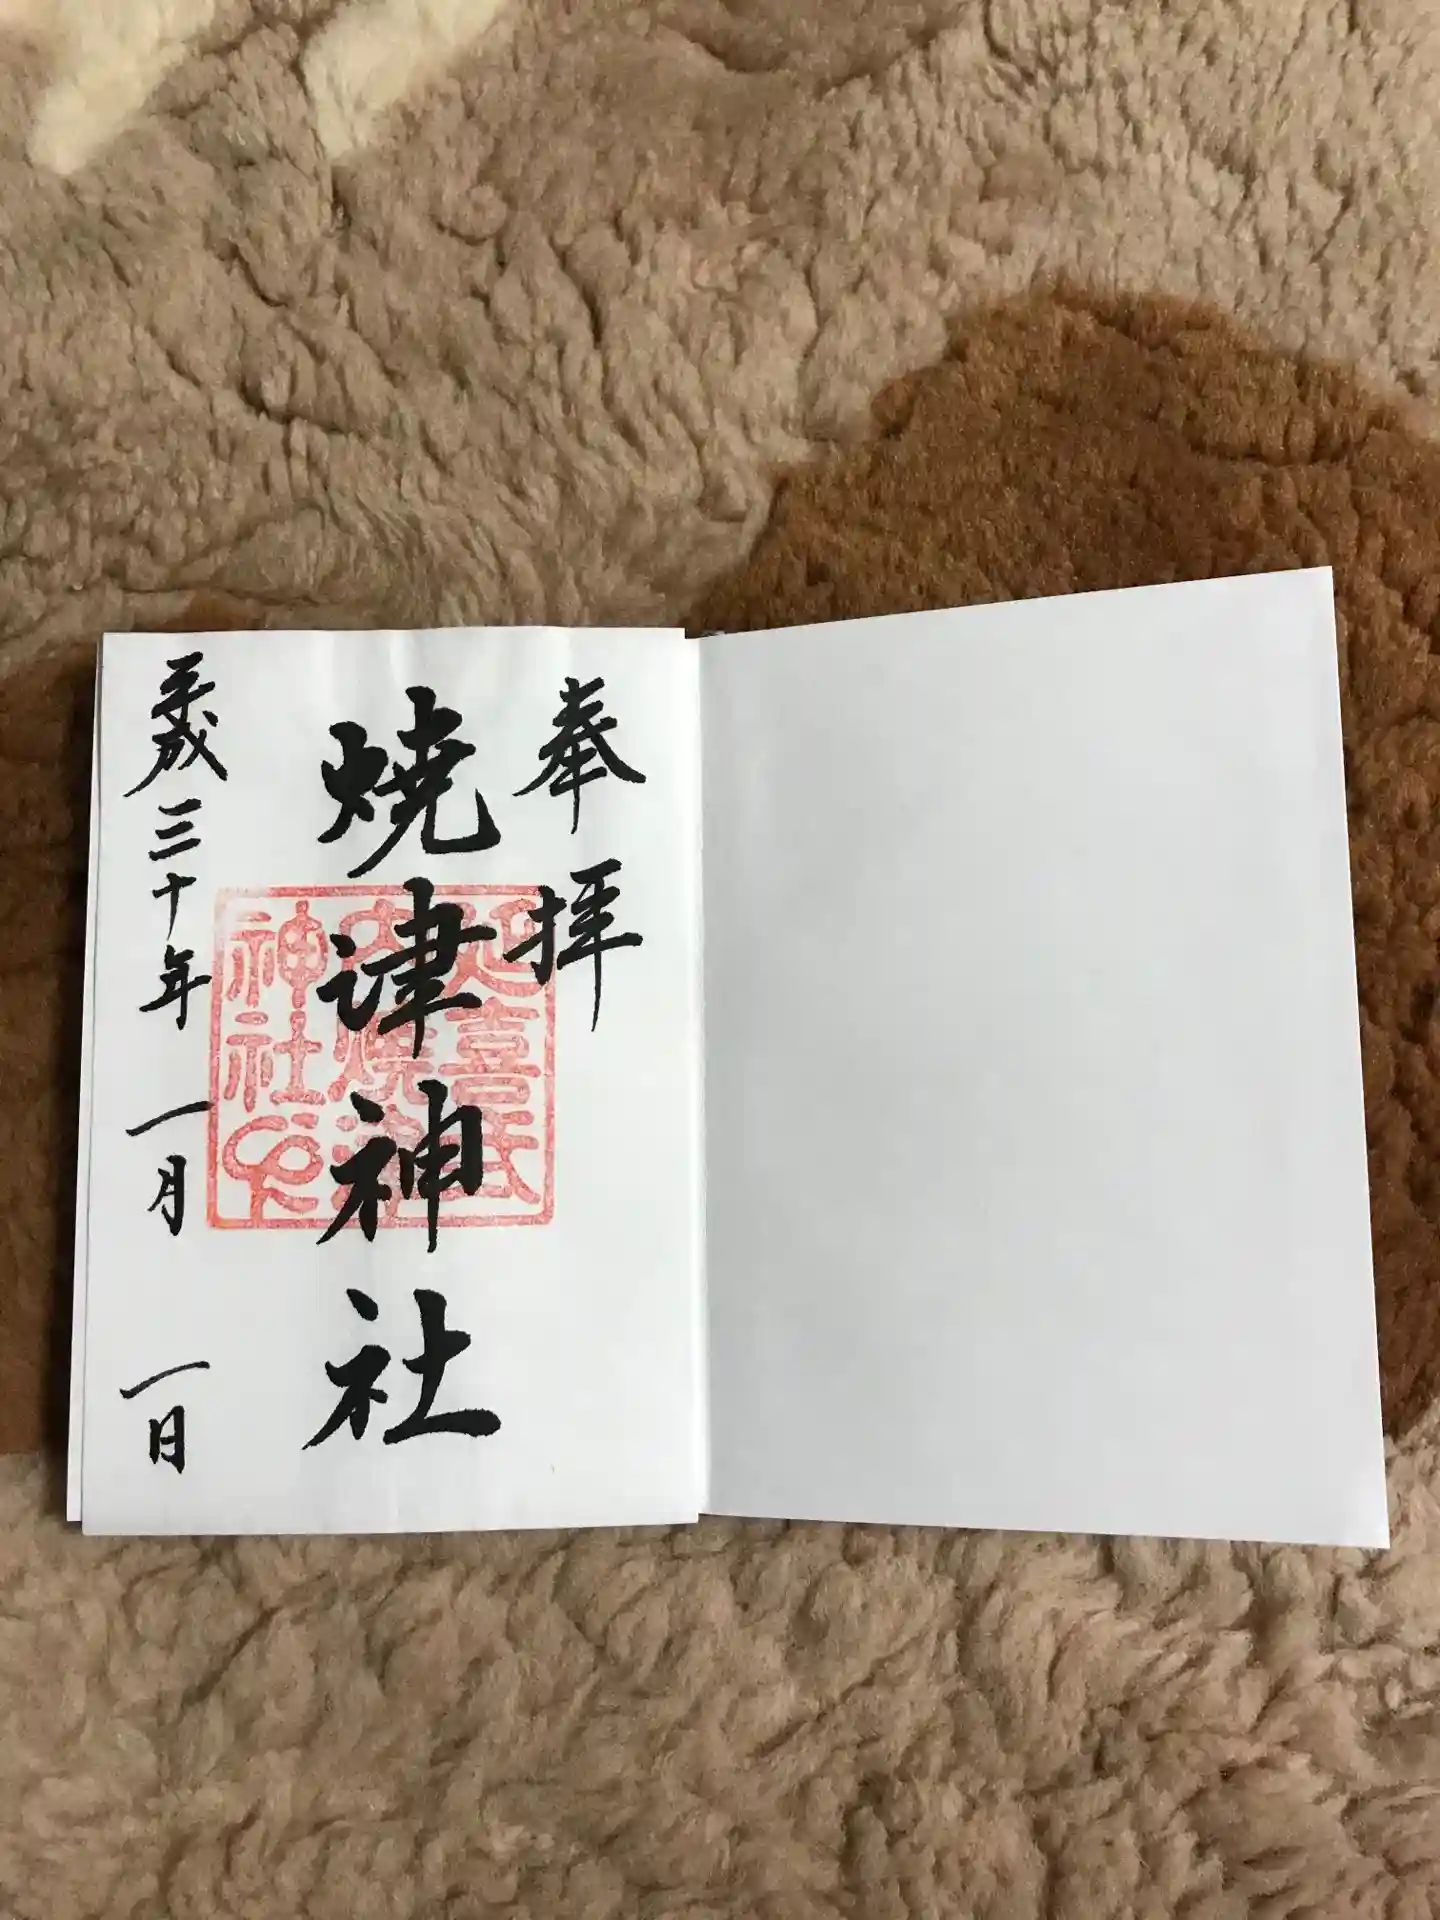 奉拝
延喜式
内焼津
神社印
焼津神社
平成三十年 一月 一日